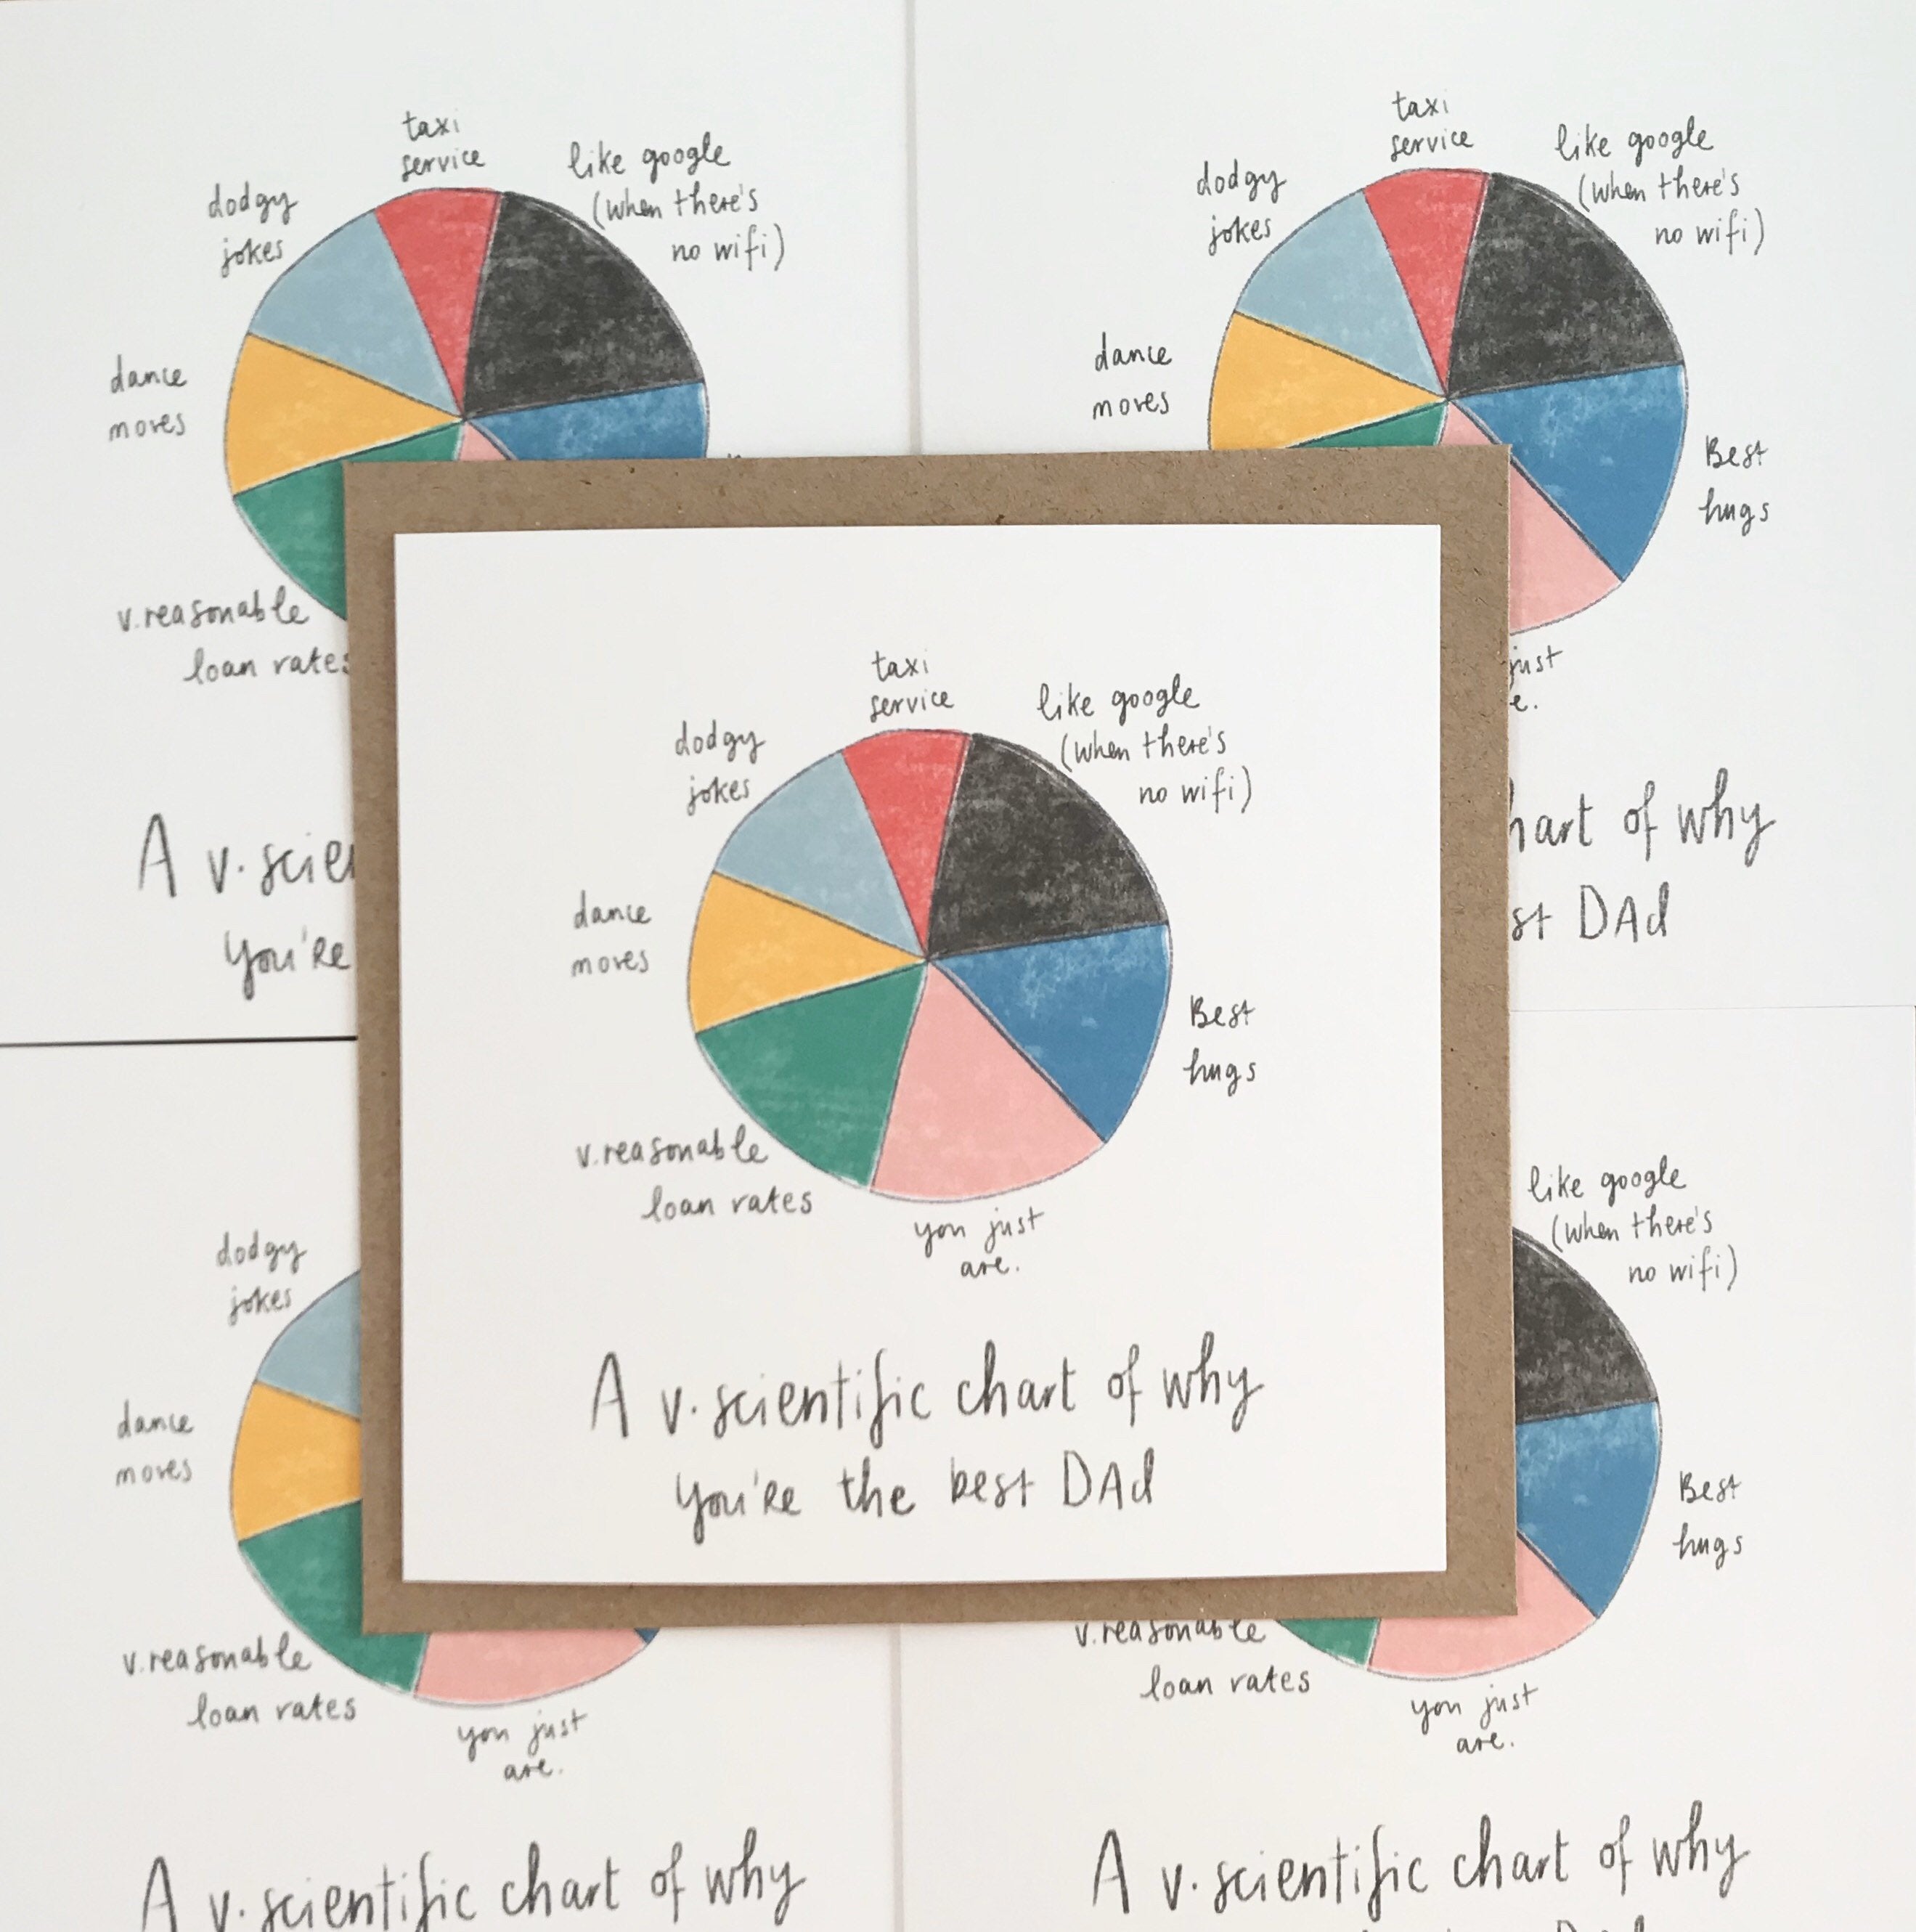 taxi
service
like google
(when there's
no wifi)
dodgy
jokes
dance
moves
v.reasonable
loan rates
taxi
service
like google
(when there's
no wifi)
dodgy
jokes
dance
moves
Best
hugs
just
hart of why
st DAd
A v.scie
you're
taxi
service
like google
(when there's
no wifi)
dodgy
jokes
dance
moves
Best
hugs
v.reasonable
loan rates
you just
are.
A v.scientific chart of why
you're the best DAd
dodgy
jokes
dance
moves
v.reasonable
loan rates
you just
are.
A v.scientific chart of why
like google
(when there's
no wifi)
Best
hugs
v.reasonable
loan rates
you just
are.
A v.scientific chart of why